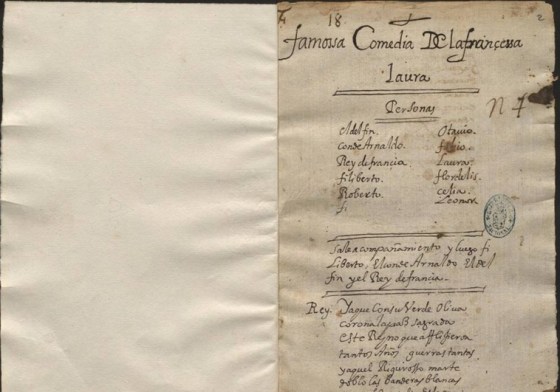 18
2
famossa Comedia De la françessa
laura
Personas
N 7
el dolfin. Otauio.
conde Arnaldo. fabio.
Rey de francia. Laura.
filiberto. flordelis.
Roberto. celia.
Leonor.
fi
sale acompañamiento y luego fi
liberto, El conde Arnaldo El del
fin y el Rey de francia.
Rey. Ya que con su Verde Oliua
corona la paz sagrada
este Reyno que afligieran
tantos años guerras tantas
y aquel Riguroso marte
doblo las banderas blancas